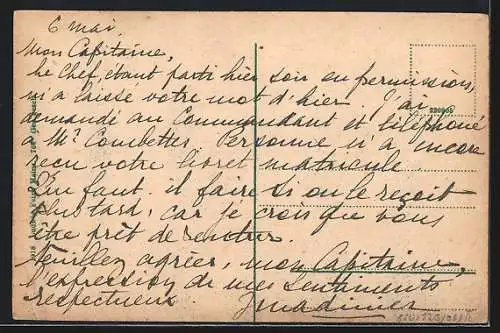 6 mai,
Mon Capitaine,
Le Chef, étant parti hier soir en permission,
m'a laissé votre mot d'hier. J'ai
demandé au Commandant et téléphoné
à Mr Combettes. Personne n'a encore
reçu votre livret matricule.
Que faut-il faire si on le reçoit
plus tard, car je crois que vous
être prêt de rentrer.
Veuillez agréer, mon Capitaine,
l'expression de mes sentiments
respectueux